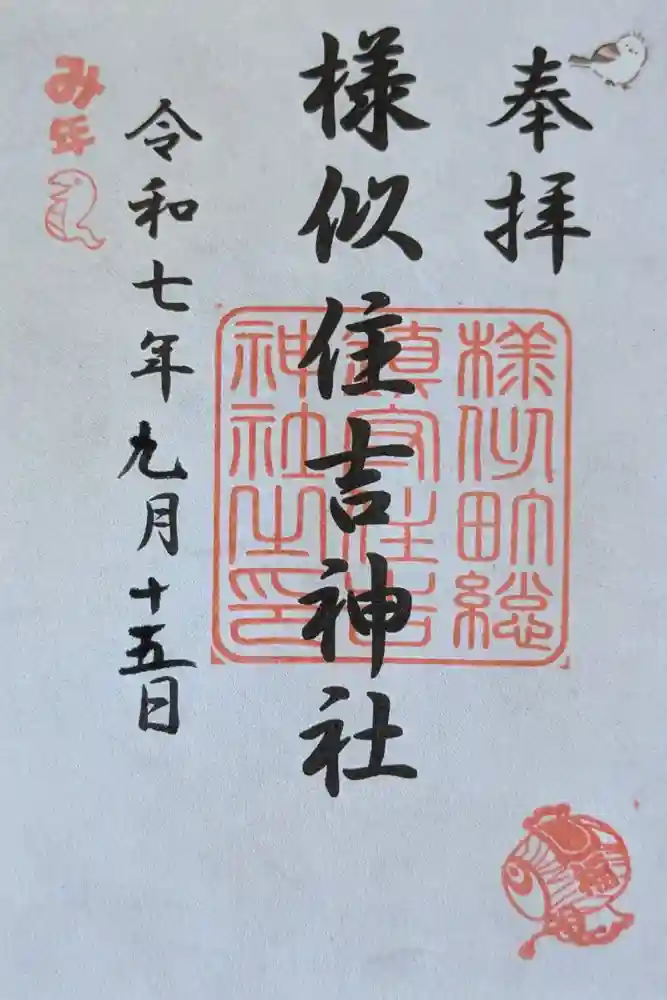 奉拝
様似町総
鎮守住吉
神社之印
様似住吉神社
令和七年九月十五日
み年